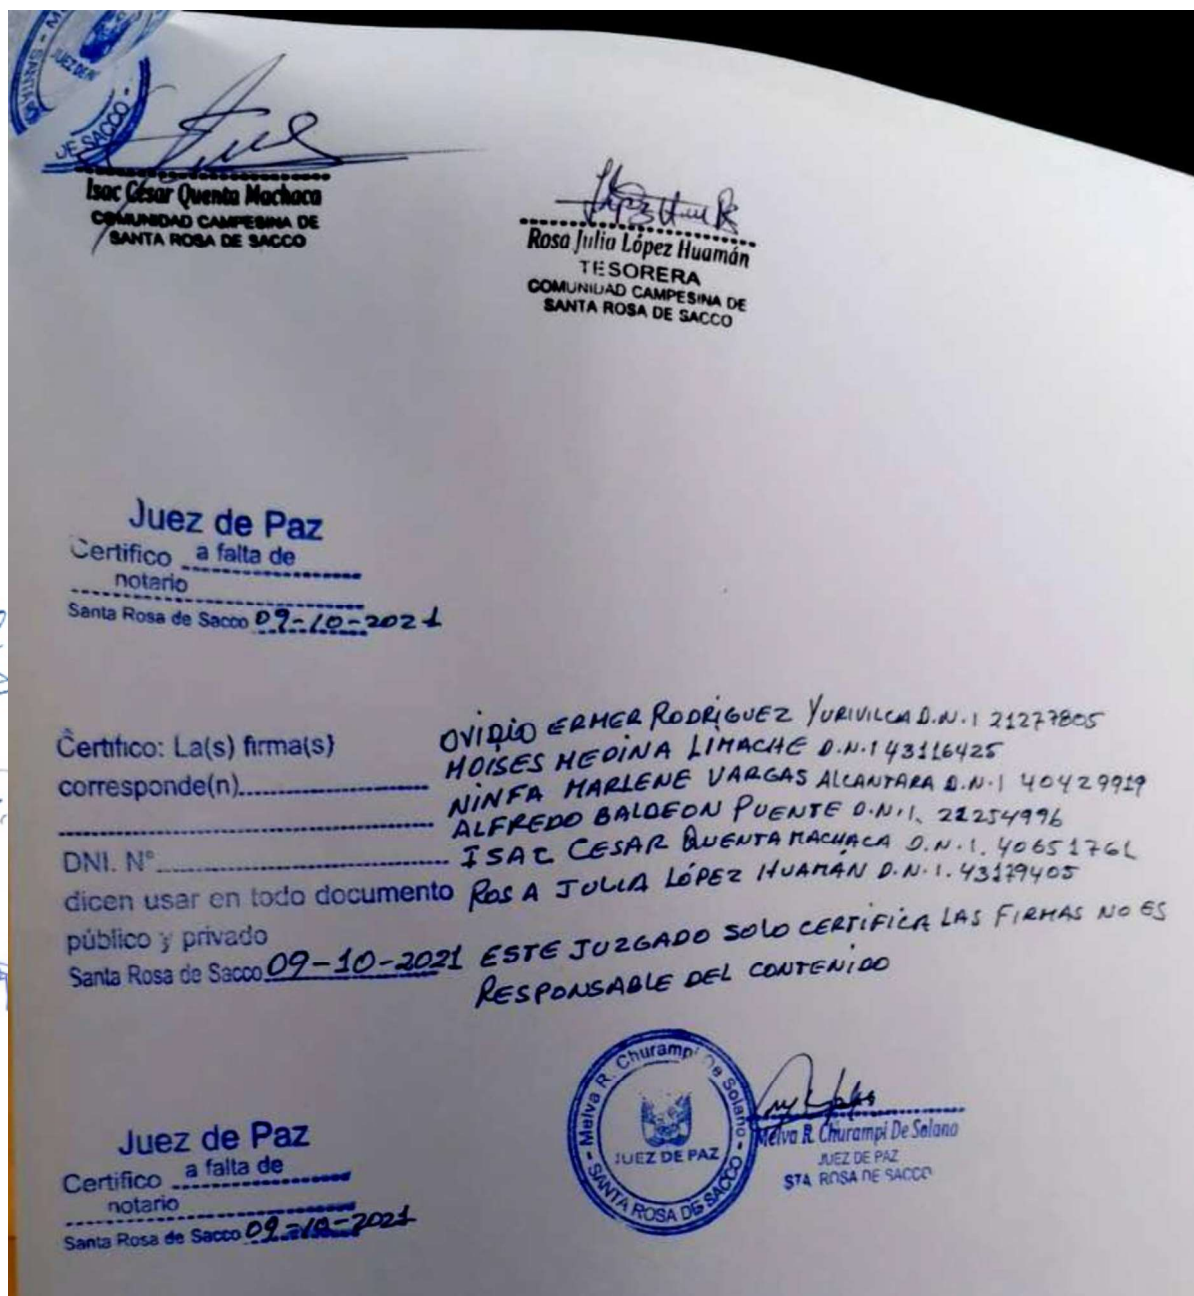 JUEZ DE
DE SACCO -
Isac César Quenta Machaca
COMUNIDAD CAMPESINA DE
SANTA ROSA DE SACCO
Rosa Julia López Huamán
TESORERA
COMUNIDAD CAMPESINA DE
SANTA ROSA DE SACCO
Juez de Paz
Certifico a falta de
notario
Santa Rosa de Sacco 09-10-2021
Certifico: La(s) firma(s)
corresponde(n)
OVIDIO ERMER RODRIGUEZ YURIVILCA D.N.I 21277805
MOISES MEDINA LIMACHE D.N.I 43116425
NINFA MARLENE VARGAS ALCANTARA D.N.I 40429919
ALFREDO BALDEON PUENTE D.N.I. 21254996
DNI. N° ISAC CESAR QUENTA MACHACA D.N.I.
dicen usar en todo documento ROSA JULIA LÓPEZ HUAMÁN D.N.I. 43179405
público y privado
Santa Rosa de Sacco 09-10-2021 ESTE JUZGADO SOLO CERTIFICA LAS FIRMAS NO ES
RESPONSABLE DEL CONTENIDO
Melva R. Churampi De Solano
JUEZ DE PAZ
SANTA ROSA DE SACCO
Melva R. Churampi De Solano
JUEZ DE PAZ
STA. ROSA DE SACCO
Juez de Paz
Certifico a falta de
notario
Santa Rosa de Sacco 09-10-2021